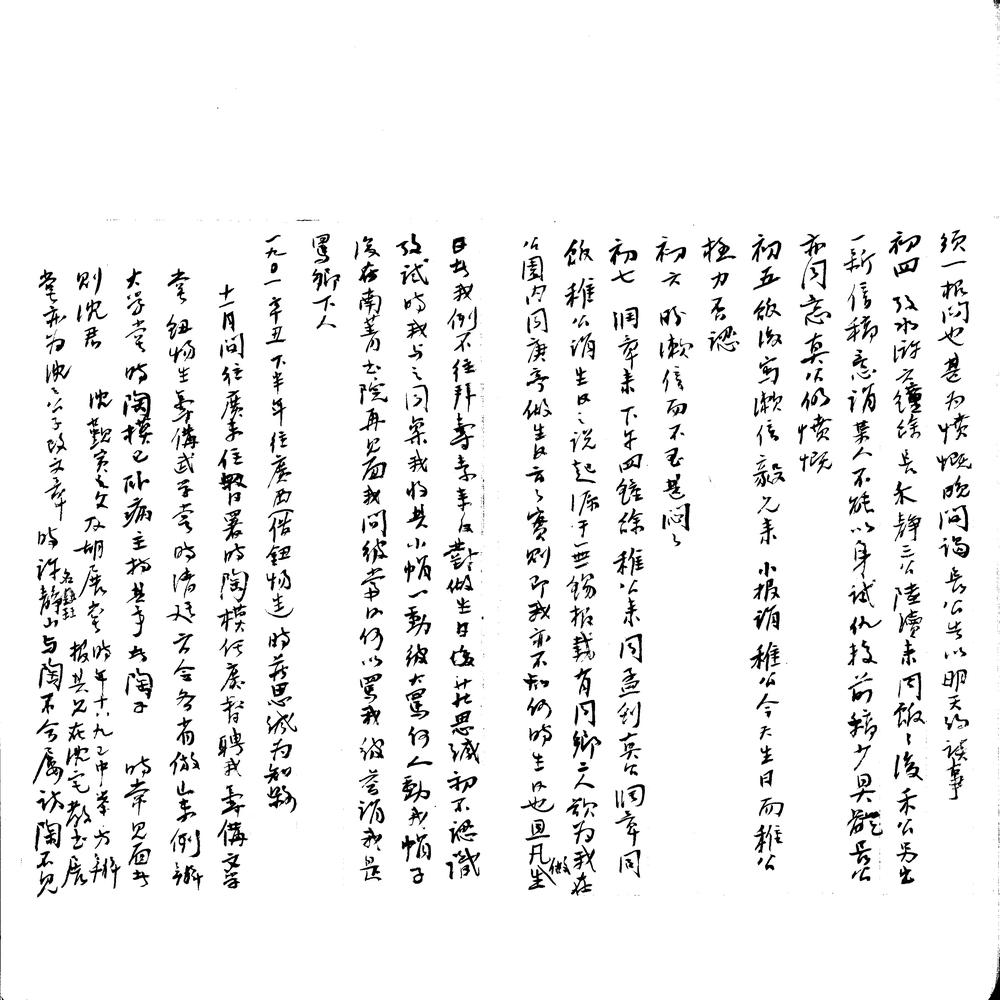 須一探問也甚為憤慨晚間謁長公告以明天約談事
初四 致水諮六鐘徐長禾靜三公陸續來同飯飯後禾公另出
一新信稿意謂某人不能以身試仇投前稿少具體長公
亦同意真公仍憤慨
初五飯後寫漱信毅兄來 小报謂稚公今天生日而稚公
極力否認
初六 盼漱信而不至甚悶悶
初七 潤章來下午四鐘徐稚公來同孟到真公潤章同
飯 稚公謂生日之說起源于無錫报載有同鄉二人欲為我在
公園內同庚亭做生日云云實則即我亦不知何時生日也且凡做生
日者我例不往拜壽李來日對做生日後 莊思緘初不認識
考試時我与之同案我將其小帽一動彼大罵何人動我帽子
後在南菁书院再見面我問彼當日何以罵我彼答謂我是
罵鄉下人
一九〇一辛丑下半年往廣西(偕鈕惕生)時莊思緘為知縣
十二月間往廣東住 署時陶模任廣督聘我籌備文學
堂鈕惕生籌備武學堂時清廷方令各省倣山東例辦
大学堂時陶模已卧病主持其事者陶子 時常見面者
則沈君 沈覲實之父及胡展堂時年十八九已中舉方辦
报其兄在沈宅教书展
堂亦為沈之公子改文章 時許靜山与陶不合屬訪陶不見